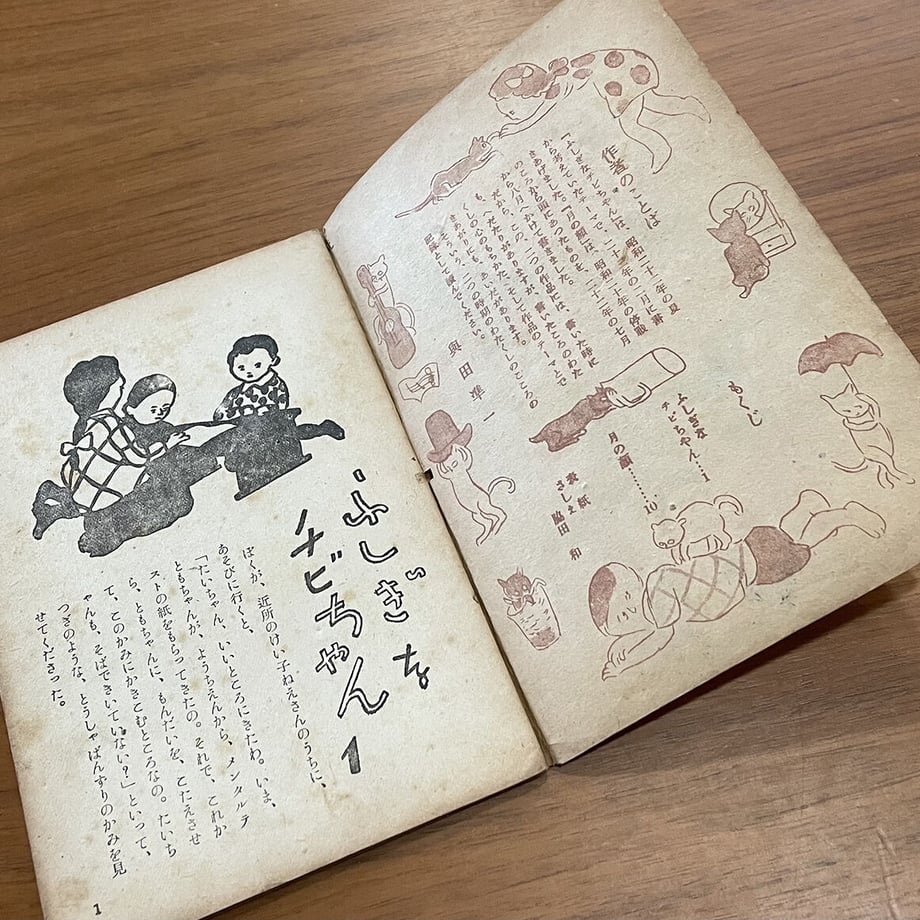 作者のことば
「ふしぎなチビちゃん」は、昭和二十一年の夏
から考えていたテーマで、二十二年の二月に書
きあげました。「月の顔」は、昭和二十年の停戰
のころから頭にあったものを、昭和二十二年の七月
から八月へかけて書きました。
だから、この、二つの作品には、書いた時に
も、へだたりがありますが、書いたころのわた
くしの心のもちかた、そして作品のテーマとで
も、あいだがあります。
そういう、二つの時期のわたくしのこころの
記録として讀んでください。
與田凖一
もくじ
ふしぎな
チビちゃん……1
月の顔……10
表紙
さしえ
脇田和
ふしぎな
チビちゃん
1
ぼくが、近所のけい子ねえさんのうちに、
あそびに行くと、
「たいちゃん、いいところにきたわ。いま、
ともちゃんが、ようちえんから、メンタルテ
ストの紙をもらってきたの。それで、これか
ら、ともちゃんに、もんだいを、こたえさせ
て、このかみにかきこむところなの。たいち
ゃんも、そばできいていない？」といって、
つぎのような、とうしゃばんずりのかみを見
せてくださった。
1